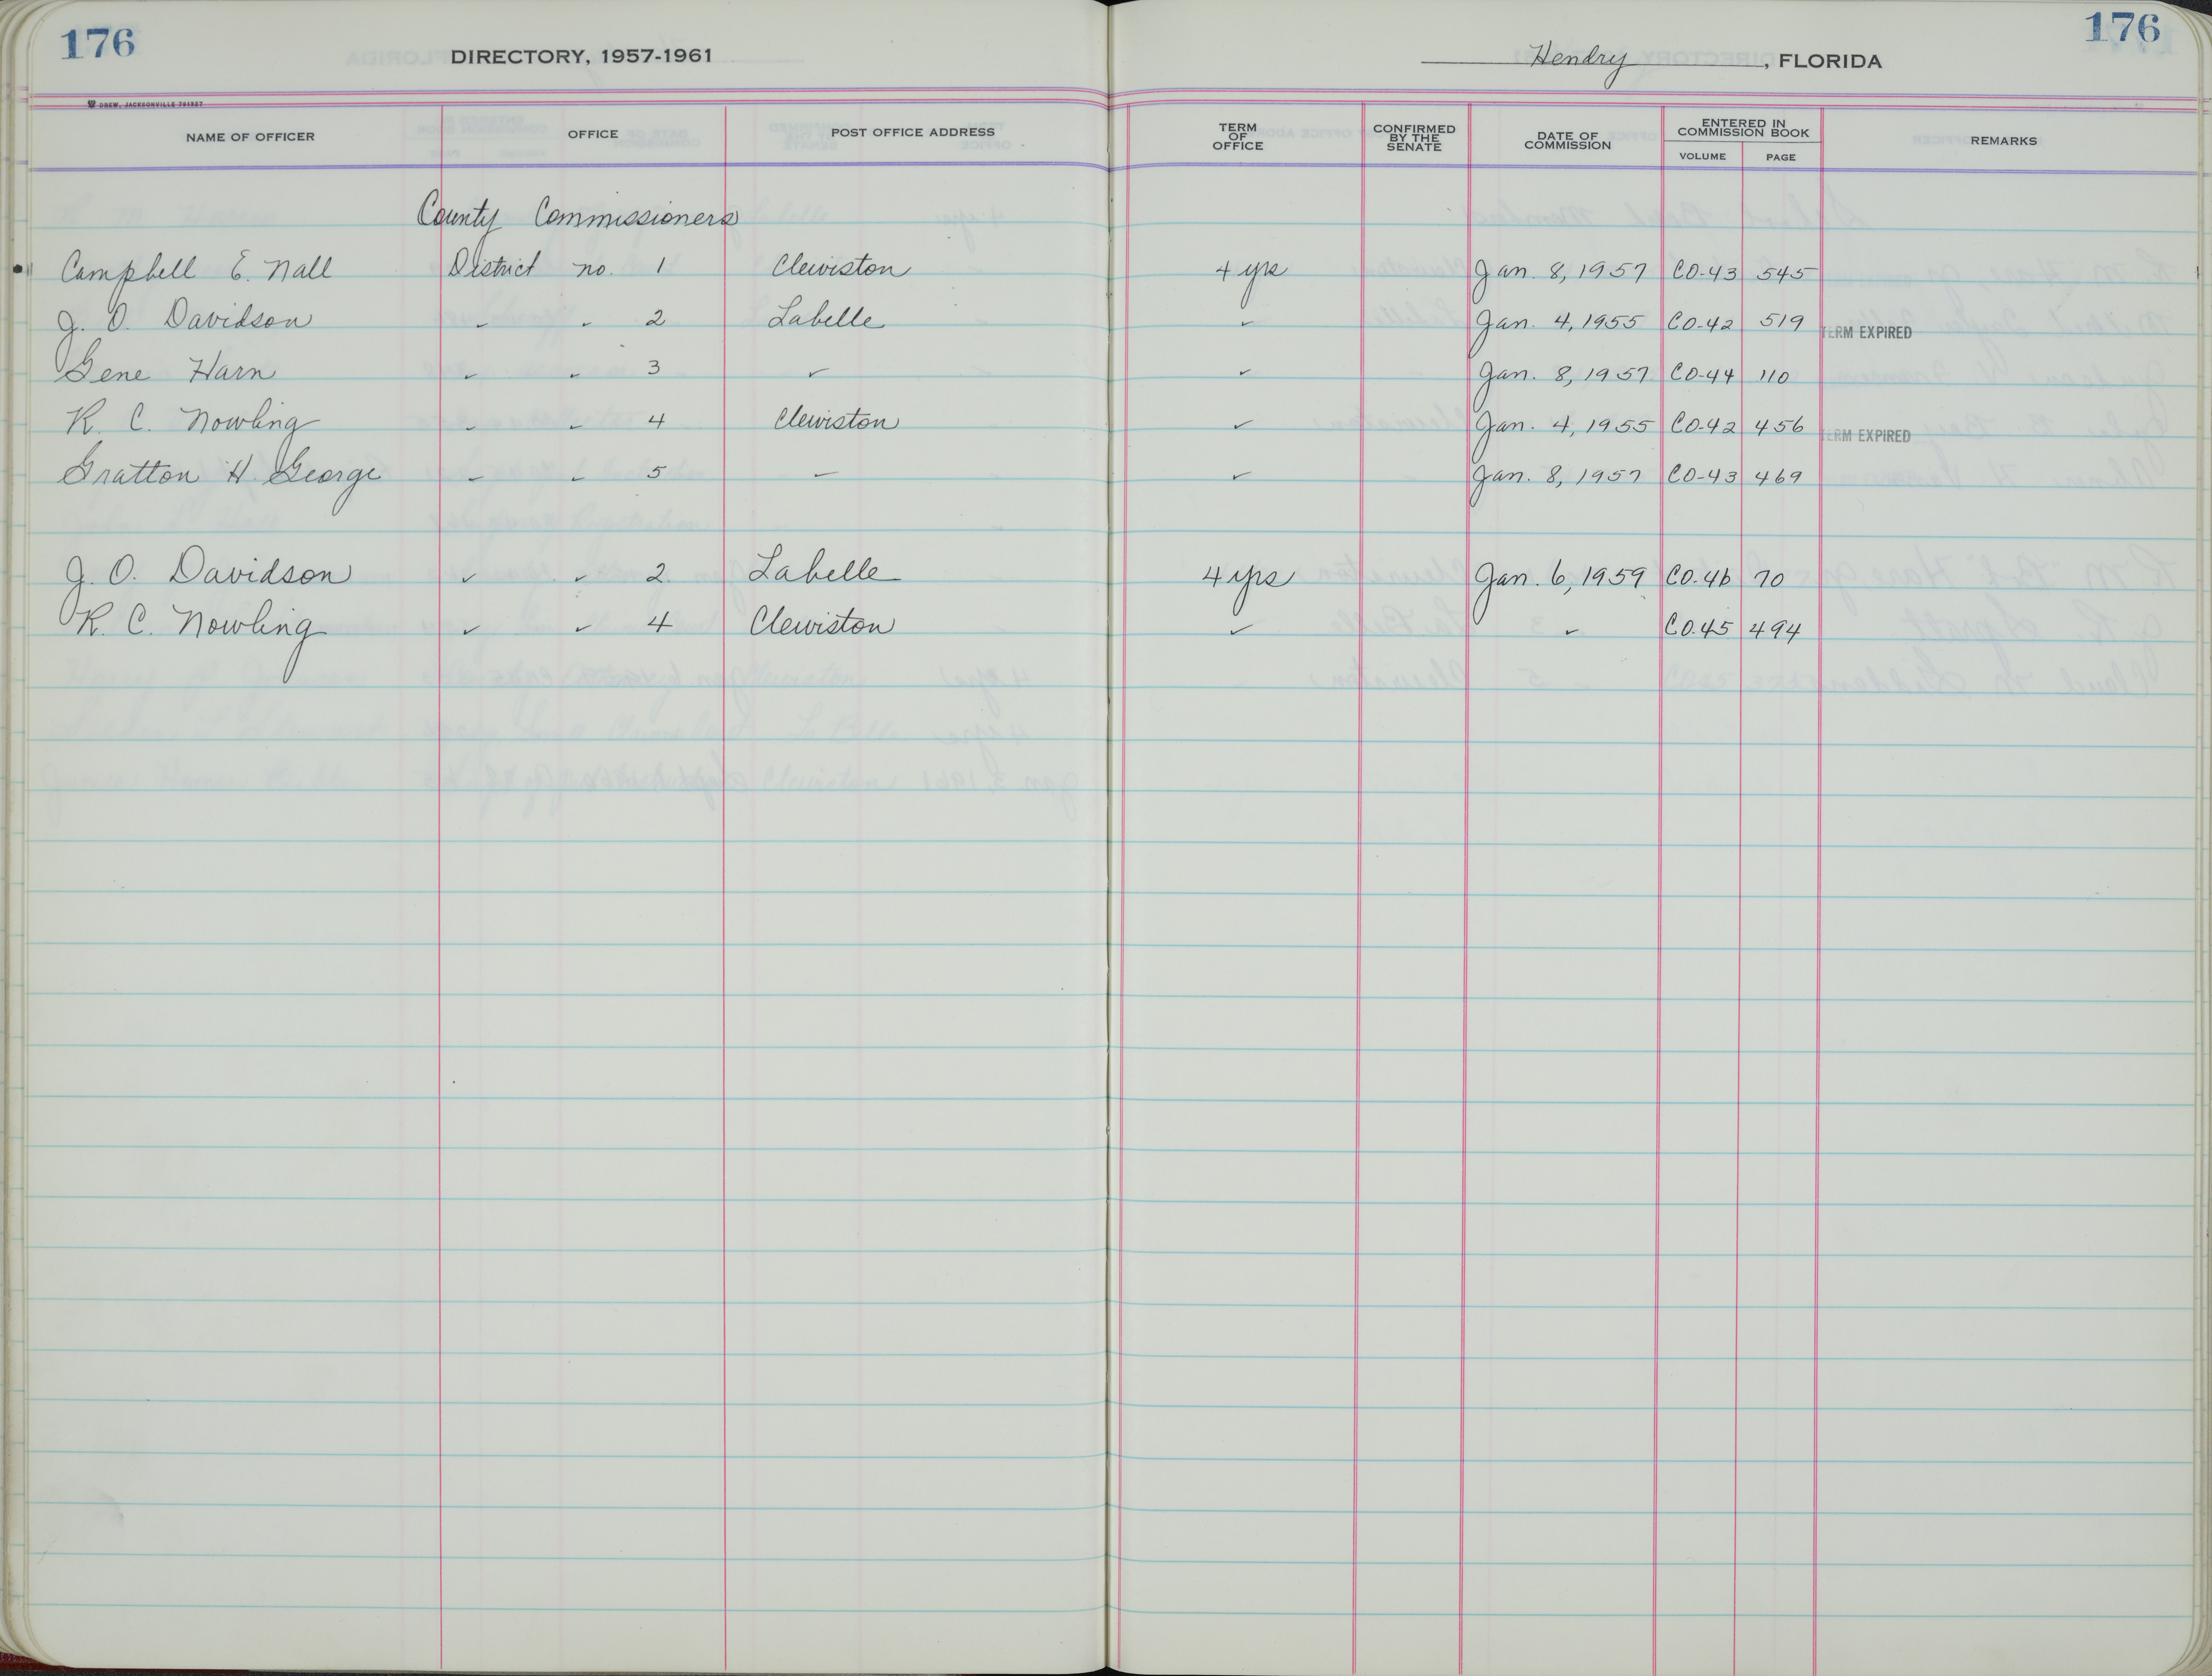 176 DIRECTORY, 1957-1961 Hendry, FLORIDA 176
DREW, JACKSONVILLE
NAME OF OFFICER OFFICE POST OFFICE ADDRESS TERM OF OFFICE CONFIRMED BY THE SENATE DATE OF COMMISSION ENTERED IN COMMISSION BOOK VOLUME PAGE REMARKS
County Commissioners
Campbell E. Nall District no. 1 Clewiston 4 yrs Jan. 8, 1957 CO-43 545
J. O. Davidson " " 2 Labelle " Jan. 4, 1955 CO-42 519 TERM EXPIRED
Gene Harn " " 3 " " Jan. 8, 1957 CO-44 110
R. C. Nowling " " 4 Clewiston " Jan. 4, 1955 CO-42 456 TERM EXPIRED
Gratton H. George " " 5 " " Jan. 8, 1957 CO-43 469
J. O. Davidson " " 2 Labelle 4 yrs Jan. 6, 1959 CO.46 70
R. C. Nowling " " 4 Clewiston " " CO.45 494